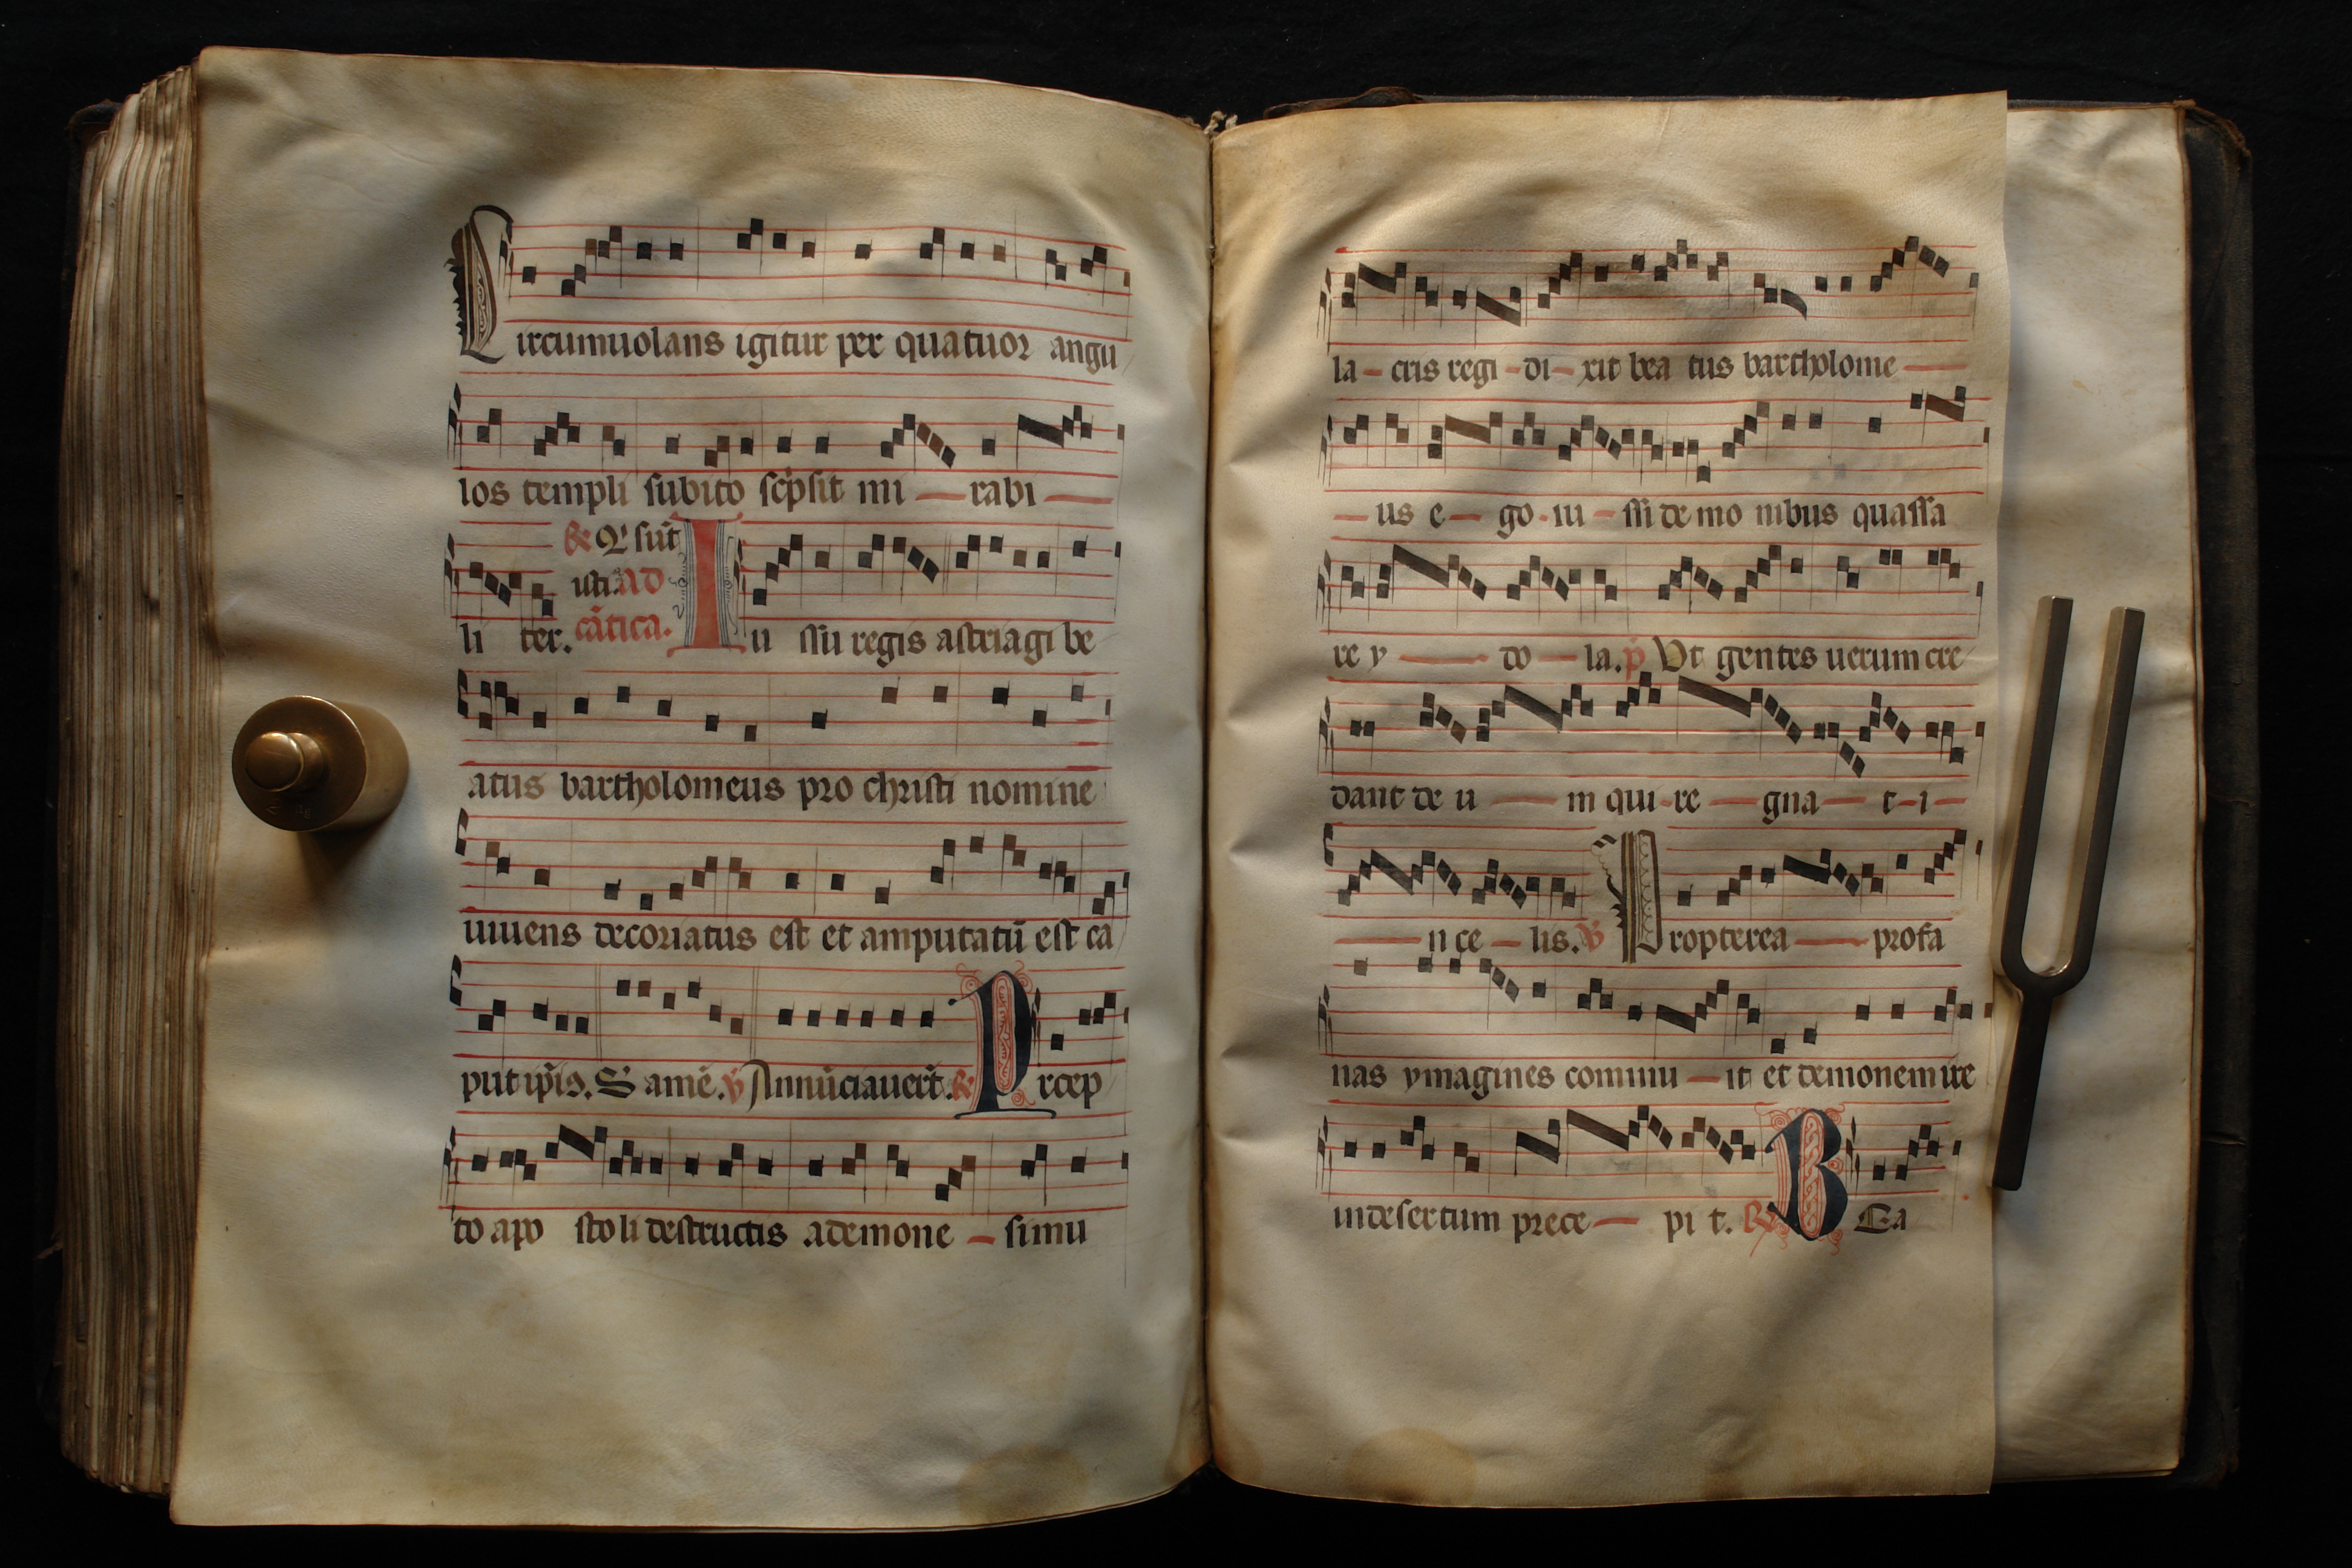 Circumuolans igitur per quatuor angu
los templi subito sc̄psit mi — rabi —
℟ Q' sūt
usti. Ad
li ter. cātica. Iu ssu regis astriagi be
atus bartholomeus pro christi nomine
uiuens decoriatus est et amputatū est ca
put ip̄is. S amē. ℣ Annūciauert̄. ℟ Prcep
to apo stoli destructis ademone — simu
la – cris regi – di – xit bea tus bartholome —
— us e — go – iu – ssi de mo nibus quassa
re y — do — la. p Vt gentes uerum cre
dant de u — m qui – re — gna — t – i —
— n ce — lis. ℣ Propterea — profa
nas ymagines comiuu — it et demonem ire
in desertum prece — pi t. ℟ BEa